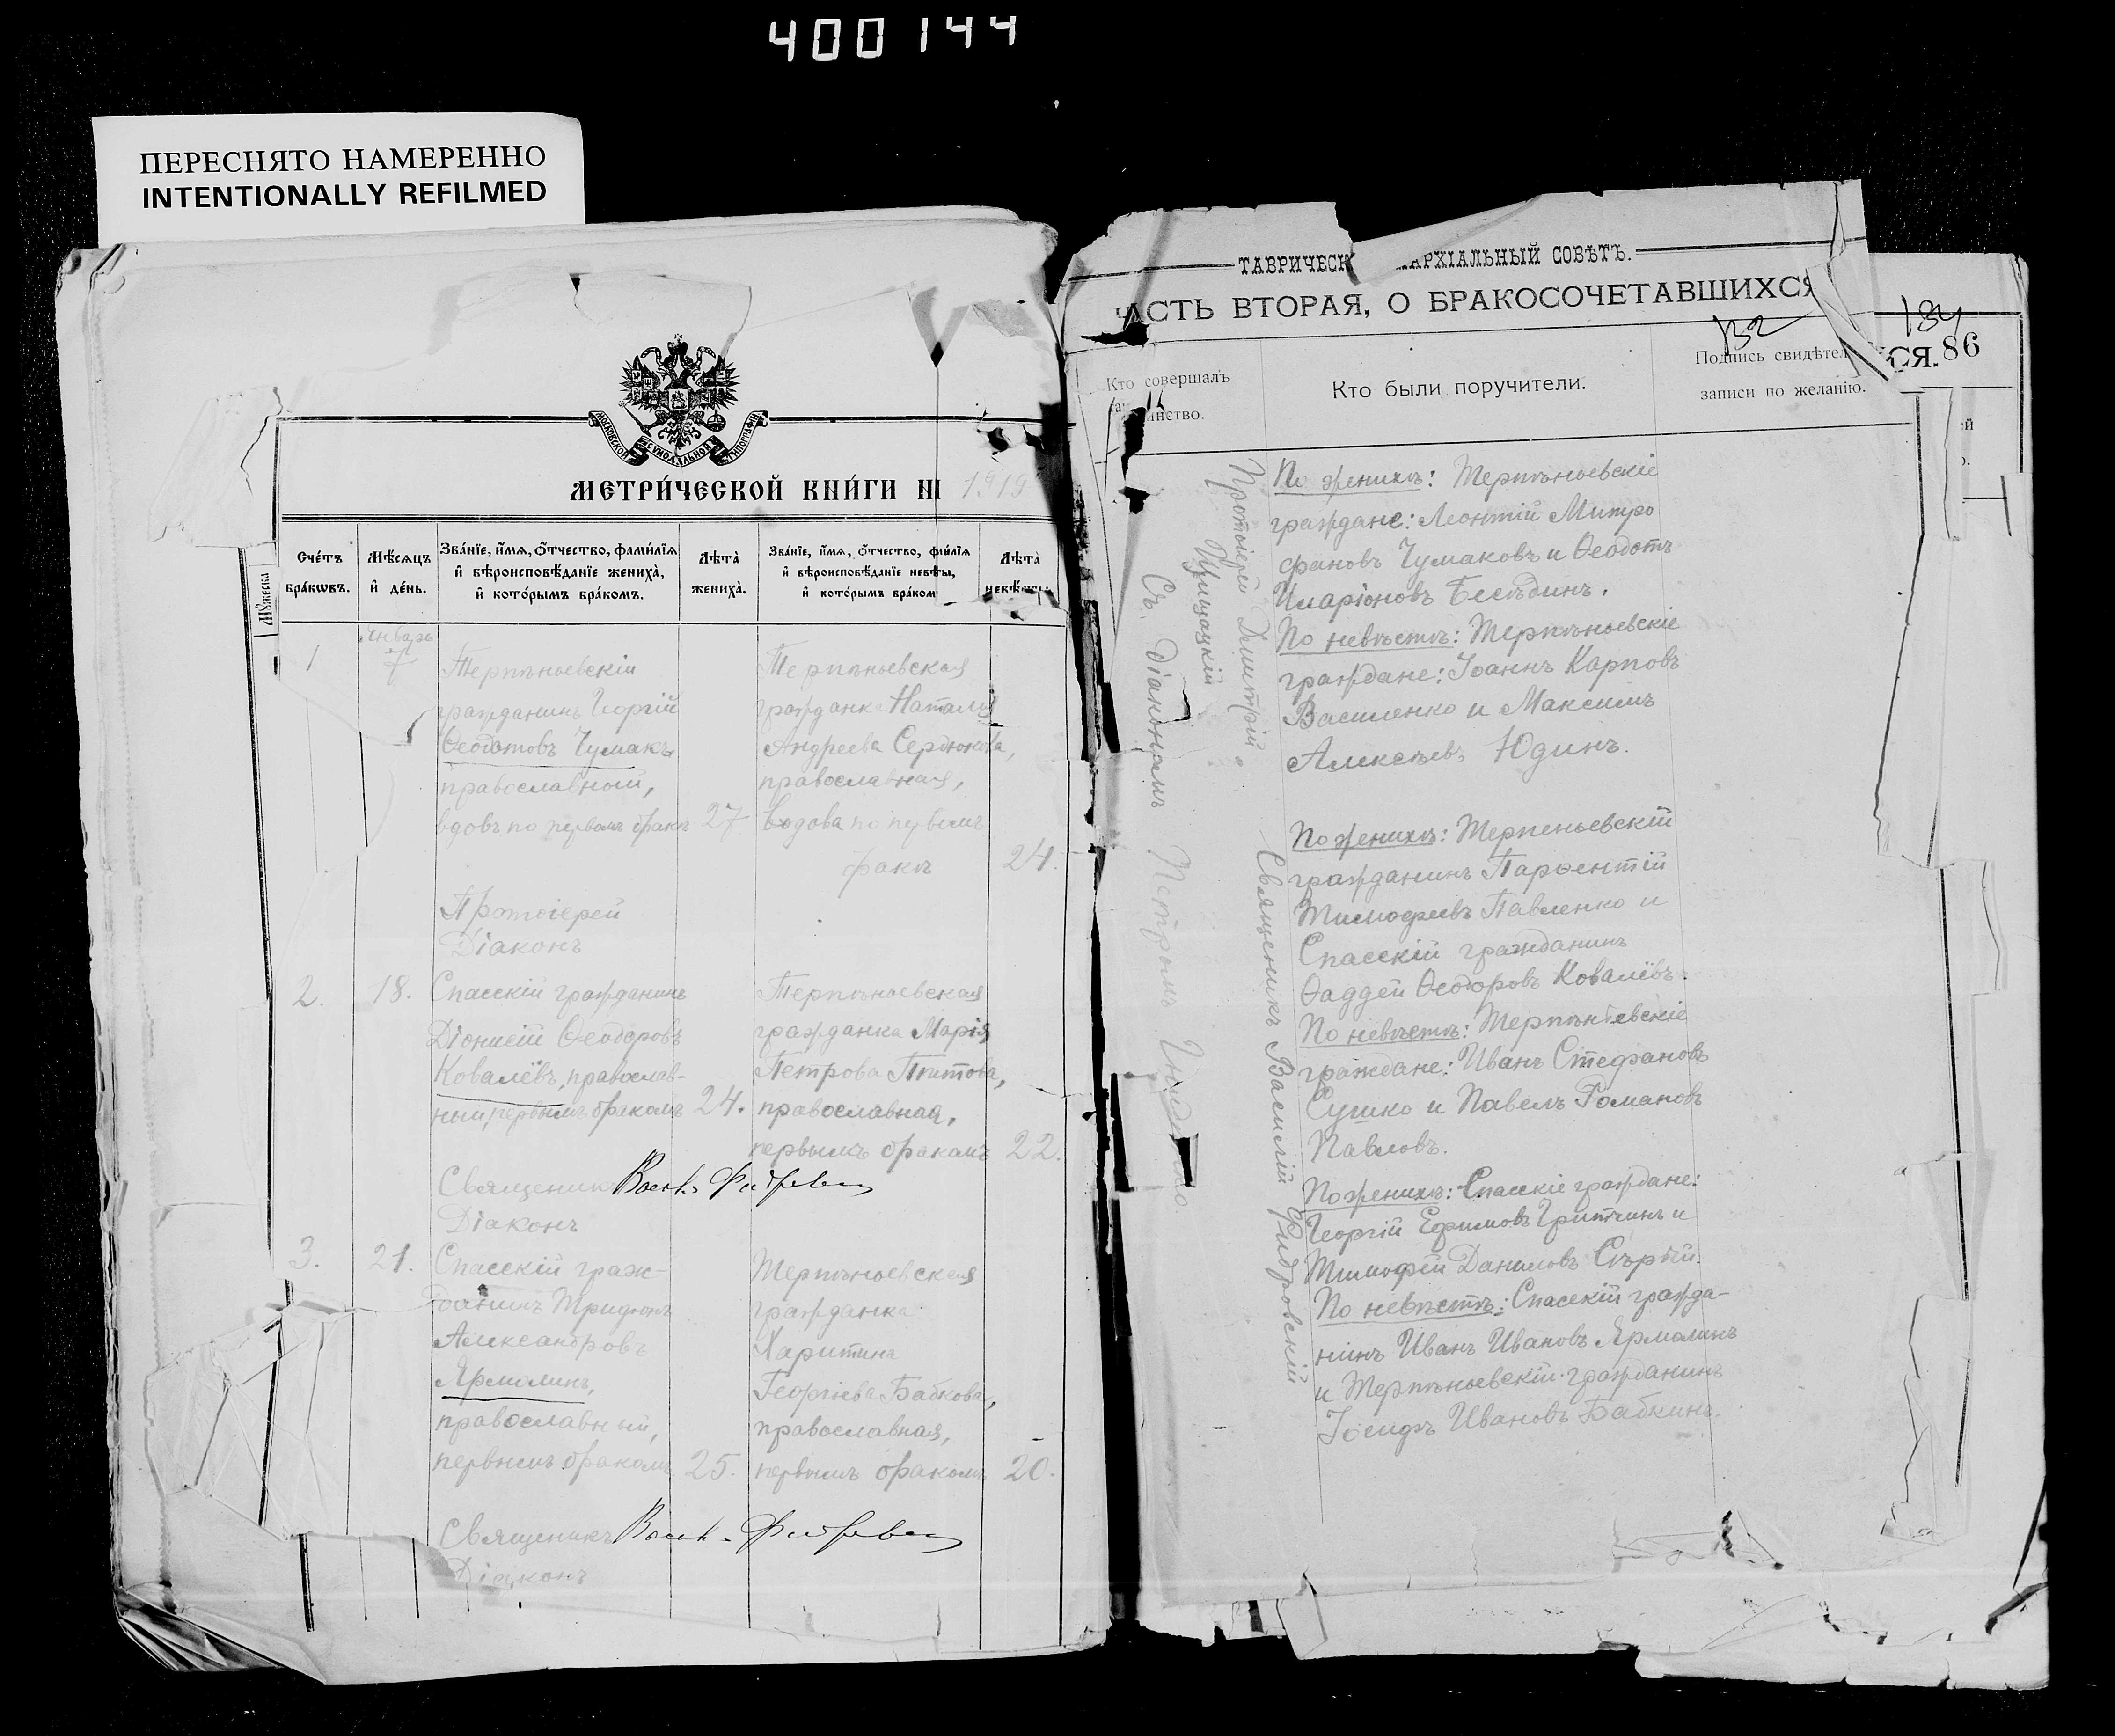 400144
ПЕРЕСНЯТО НАМЕРЕННО
INTENTIONALLY REFILMED
МОСКОВСКОЙ СѴНОДАЛЬНОЙ ТИПОГРАФІИ
МЕТРИ́ЧЕСКОЙ КНИ́ГИ Н 1919
Сче́тъ
бра́кѡвъ.
Мѣ́сѧцъ
и҆ де́нь.
Зва́нїе, и҆́мѧ, ѻ҆́тчество, фами́лїѧ
и҆ вѣроисповѣ́данїе жениха̀,
и҆ кото́рымъ бра́комъ.
Лѣта̀
жениха̀.
Зва́нїе, и҆́мѧ, ѻ҆́тчество, фами́лїѧ
и҆ вѣроисповѣ́данїе невѣ́сты,
и҆ кото́рымъ бра́ком
Лѣта̀
невѣ́сты.
Январь
1
7
Терпѣньевскій
гражданинъ Георгій
Ѳеодотовъ Чумакъ
православный,
вдовъ по первомъ бракѣ
27
Терпѣньевская
гражданка Наталія
Андреева Сердюкова,
православная,
вдова по первомъ
бракѣ
24.
Протоіерей
Діаконъ
2.
18.
Спасскій гражданинъ
Діонисій Ѳеодоровъ
Ковалёвъ, православ-
ный, первымъ бракомъ
24.
Терпѣньевская
гражданка Марія
Петрова
православная,
первымъ бракомъ
22.
Священникъ
Діаконъ
3.
21.
Спасскій граж-
данинъ Трифонъ
Александровъ
Ярмолинъ,
православный,
первымъ бракомъ
25.
Терпѣньевская
гражданка
Харитина
Георгіева Бабкова,
православная,
первымъ бракомъ
20.
Священникъ
Діаконъ
ТАВРИЧЕСК АРХІАЛЬНЫЙ СОВѢТЪ.
ЧАСТЬ ВТОРАЯ, О БРАКОСОЧЕТАВШИХСЯ
132
134
СЯ. 86
Кто совершалъ
таинство.
Кто были поручители.
Подпись свидѣтел
записи по желанію.
Протоіерей Димитрій
Съ діакономъ Петромъ
Священникъ Василій Фидровскій
По женихѣ: Терпѣньевскіе
граждане: Леонтій Митро
фановъ Чумаковъ и Ѳеодотъ
Иларіоновъ Бесѣдинъ.
По невѣстѣ: Терпѣньевскіе
граждане: Іоаннъ Карповъ
Василенко и Максимъ
Алексѣевъ Юдинъ.
По женихѣ: Терпеньевскій
гражданинъ Парѳентій
Тимофеевъ Павленко и
Спасскій гражданинъ
Ѳаддей Ѳеодоровъ Ковалёвъ.
По невѣстѣ: Терпѣньевскіе
граждане: Иванъ Стефановъ
Сушко и Павелъ Романовъ
Павловъ.
По женихѣ: Спасскіе граждане:
Георгій Ефимовъ Гритчинъ и
Тимофей Даниловъ Сѣрый.
По невѣстѣ: Спасскій гражда-
нинъ Иванъ Ивановъ Ярмолинъ
и Терпѣньевскій гражданинъ
Іосифъ Ивановъ Бабкинъ.